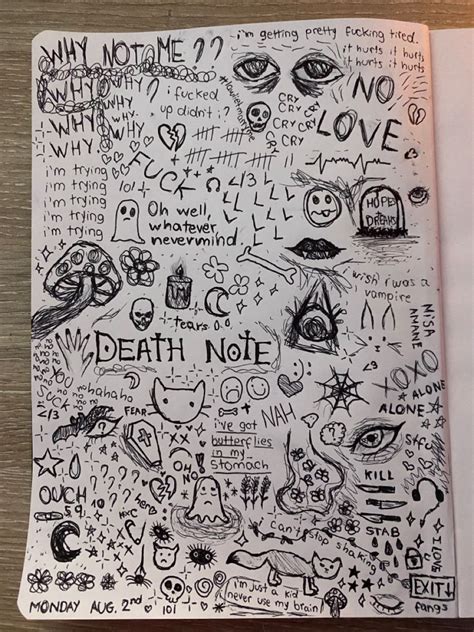 WHY NOT ME ??
i'm getting pretty fucking tired.
it hurts it hurts
it hurts it hurts
WHY WHY?
WHY WHY?
WHY WHY
WHY
i fucked
up didn't i?
CRY
CRY CRY
CRY CRY
CRY
NO
LOVE
FUCK
i'm trying
i'm trying
i'm trying
i'm trying
i'm trying
101
</3
L L L
Oh well,
whatever,
nevermind
HOPES
DREAMS
i wish i was a
vampire
MISA
AMANE
tears 0.0
DEATH NOTE
<3
XOXO
ALONE
ALONE
YOU
SUCK
</3
hahaha
FEAR
NAH
i've got
butterflies
in my
stomach
OH
NO!
OUCH
KILL
STAB
can't stop shaking
I LOVE
EXIT
fangs
i'm just a kid
never use my brain!
MONDAY AUG. 2nd
101